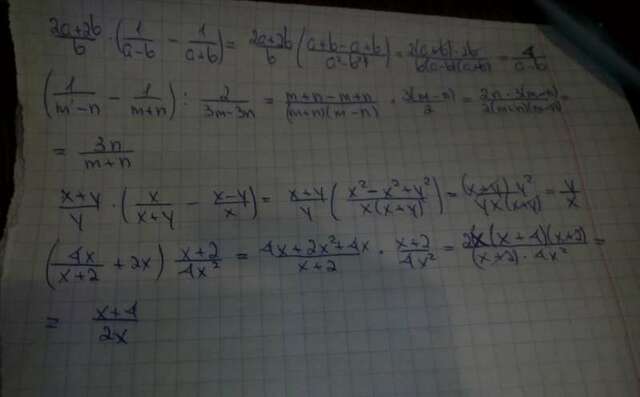 (2a+2b)/b · (1/(a-b) - 1/(a+b)) = (2a+2b)/b ((a+b-a+b)/(a²-b²)) = (2(a+b)·2b)/(b(a-b)(a+b)) = 4/(a-b)
(1/(m-n) - 1/(m+n)) : 2/(3m-3n) = (m+n-m+n)/((m+n)(m-n)) · 3(m-n)/2 = (2n·3(m-n))/(2(m+n)(m-n)) =
= 3n/(m+n)
(x+y)/y · (x/(x+y) - (x-y)/x) = (x+y)/y ((x²-x²+y²)/(x(x+y))) = ((x+y)·y²)/(yx(x+y)) = y/x
(4x/(x+2) + 2x) (x+2)/(4x²) = (4x+2x²+4x)/(x+2) · (x+2)/(4x²) = (2x(x+4)(x+2))/((x+2)·4x²) =
= (x+4)/(2x)